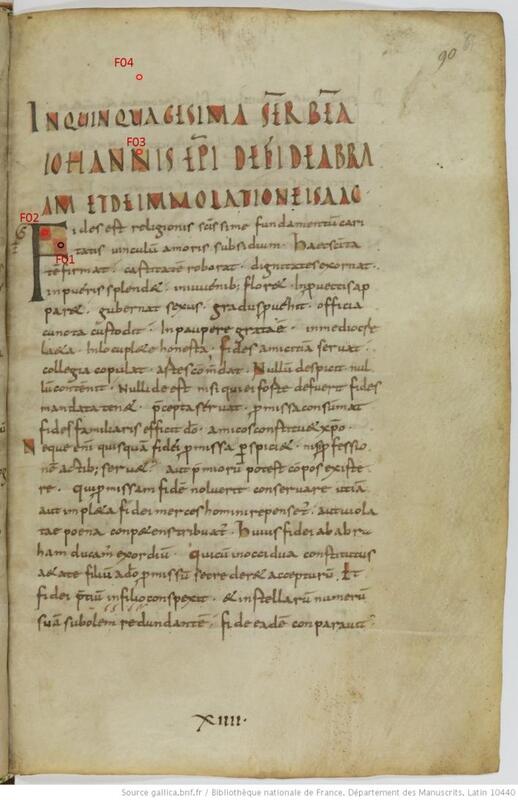 F04
90
INQUINQUAGESIMA SER BEA
F03
IOHANNIS EPI DE FIDE ABRA
AM ET DE IMMOLATIONE ISAAC
F02
Fides est religionis scissime fundamentu cari
tatis vinculu amoris subsidium. haec scita
F01
te firmat. castitate roborat. dignitates exornat.
inpueris splendet. iuvenib; floret. Inprovectis ap
paret. gubernat sexus. gradus provehit. officia
cuncta custodit. Inpaupere grata e. inmediocre
laeta. Inlocuplete honesta. fides amicitia servat.
collegia copulat. artes comdat. Nullu despicit nul
lu contenit. Nulli deest nisi qui ei forte defuerit fides
mandata tenet. pcepta servat. pmissa consumat
fides familiaris efficit do. amicos constituet xpo.
Neque eni quisqua fidei pmissa pspiciet. nisi pfessio
ne actib; servet. aut pmioru potest copos existe
re. qui pmissam fide noluerit conservare
aut impleta fidei merces homini repenset. aut viola
tae poena conpetens tribuat. Huius fidei ab abra
ham ducam exordiu. Qui cu inoccidua constitutus
aetate filiu a do pmissu se crederet accepturu. Et
fidei ptiu infilio conspexit. et instellaru numeru
sua subolem redundante. fide eade conparavit.
XIIII.
Source gallica.bnf.fr / Bibliothèque nationale de France. Département des Manuscrits. Latin 10440